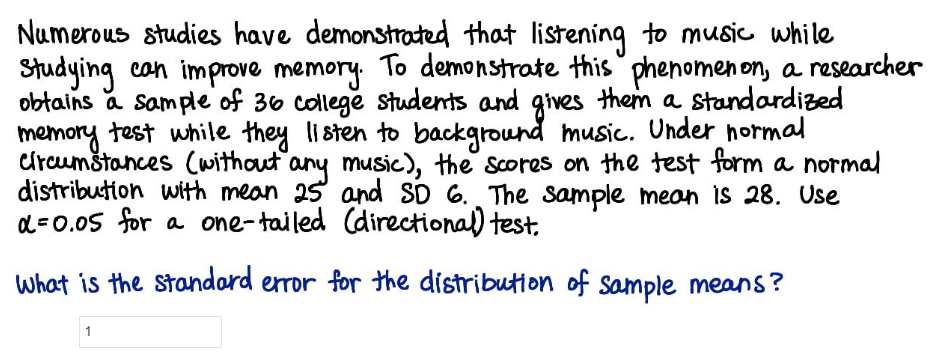 Numerous studies have demonstrated that listening to music while
Studying can improve memory. To demonstrate this phenomenon, a researcher
obtains a sample of 36 college students and gives them a standardized
memory test while they listen to background music. Under normal
circumstances (without any music), the scores on the test form a normal
distribution with mean 25 and SD 6. The sample mean is 28. Use
α=0.05 for a one-tailed (directional) test.
What is the standard error for the distribution of sample means?
1